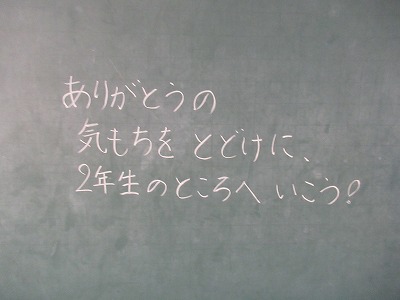 ありがとうの
気もちを とどけに、
2年生のところへ いこう!